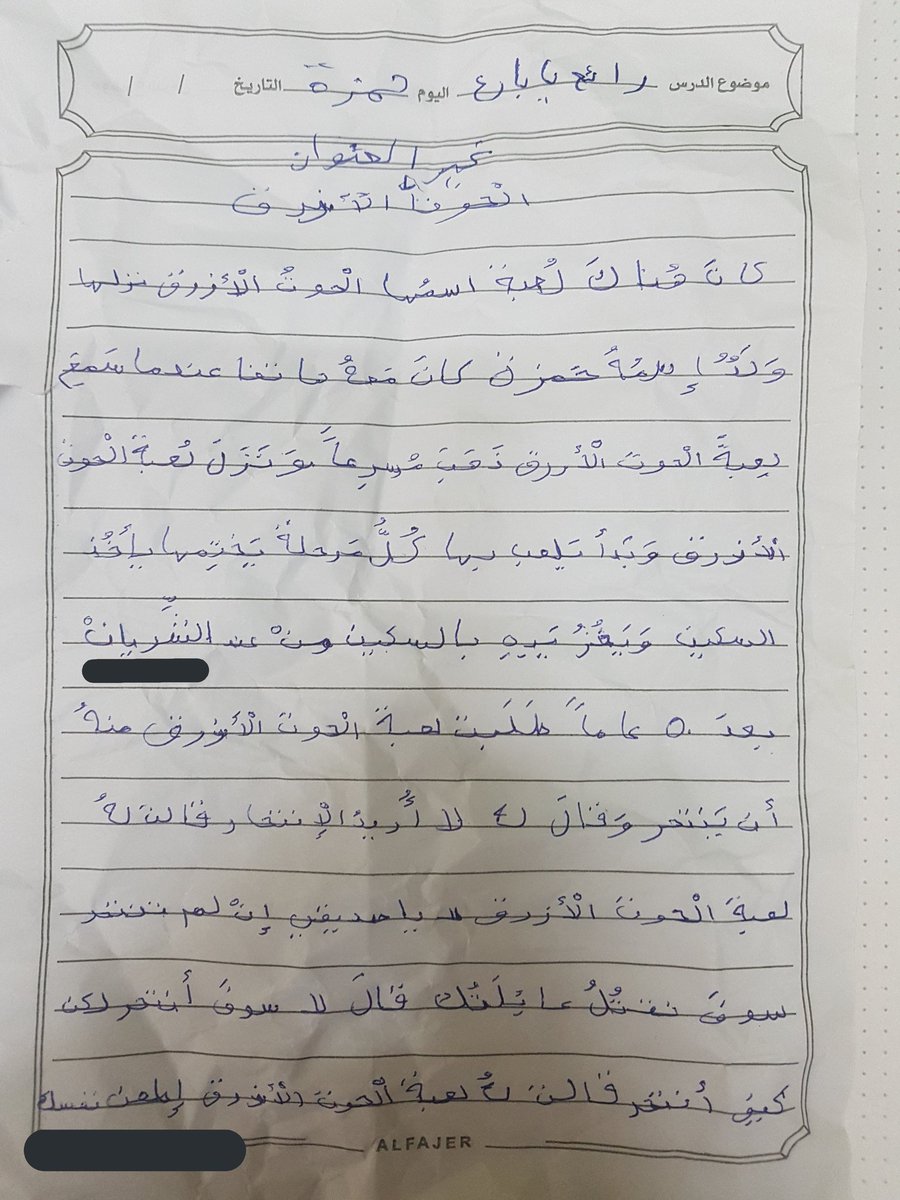 موضوع الدرس رائع يا بارع اليوم حمزة التاريخ / /
غير العنوان
الحوت الأزرق
كَانَ هُناكَ لُعبةٌ اسمُها الْحوتُ الْأَزرق نزلها
وَلَدٌ إِسمُهُ حمزة كانَ مَعهُ هاتفا عندما سَمِعَ
بِعبةَ الْحوت الْأَزرق ذَهَبَ مُسرِعاً وَنَزَلَ لعبةَ الْحوت
الْأَزرق وَبَدأَ يَلعب بها كُلُّ مَرحلةٍ يَختِمها يأخُذ
السكين وَيَغُزُ يَدِهِ بالسكين مِنْ عند الشِّريانْ
بعدَ ٥٠ عاماً طَلَبت لعبة الْحوت الْأَزرق منهُ
أن يَنتحر وَقالَ له لا أُريدُ الإنتحار قالت لهُ
لعبةَ الْحوت الْأَزرق " يا صديقي إنْ لم تنتحر
سوفَ نقتُلُ عائِلَتُك قالَ لا سوفَ أَنتحر لكن
كيفَ أَنتحر قالت لهُ لعبةُ الْحوت الْأَزرق إِطعن نفسك
ALFAJER